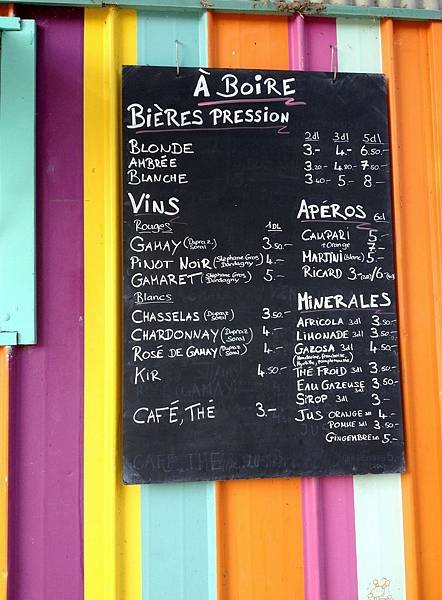 À BOIRE
BIÈRES PRESSION 2dl 3dl 5dl
BLONDE 3.- 4.- 6.50.-
AMBRÉE 3.20.- 4.80.- 7.50.-
BLANCHE 3.40.- 5.- 8.-
VINS
Rouges 1DL
GAMAY (Dupraz Soral) 3.50.-
PINOT NOIR (Stéphane Gros Dardagny) 4.-
GAMARET (Stéphane Gros Dardagny) 5.-
Blancs
CHASSELAS (Dupraz) 3.50.-
CHARDONNAY (Dupraz Soral) 4.-
ROSÉ DE GAMAY (Dupraz Soral) 4.-
KIR 4.50.-
CAFÉ, THÉ 3.-
APÉROS 6cl
CAMPARI 5.-
+ Orange 7.-
MARTINI (Blanc) 5.-
RICARD 3.- /6.-
MINERALES
AFRICOLA 3dl 3.50.-
LIMONADE 3dl 3.50.-
GAZOSA 3dl 4.50.-
(Mandarine, framboise,
Myrtille, pamplemousse)
THÉ FROID 3dl 3.50
EAU GAZEUSE 3dl 3.50
SIROP 3dl 3.-
JUS ORANGE 4.-
POMME 3dl 3.50.-
GINGEMBRE 5.-